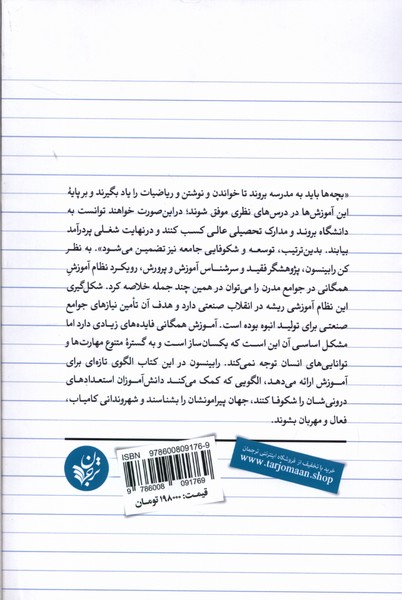 «بچه‌ها باید به مدرسه بروند تا خواندن و نوشتن و ریاضیات را یاد بگیرند و بر پایهٔ
این آموزش‌ها در درس‌های نظری موفق شوند؛ دراین‌صورت خواهند توانست به
دانشگاه بروند و مدارک تحصیلی عالی کسب کنند و درنهایت شغلی پردرآمد
بیابند. بدین‌ترتیب، توسعه و شکوفایی جامعه نیز تضمین می‌شود». به نظر
کن رابینسون، پژوهشگر فقید و سرشناس آموزش و پرورش، رویکرد نظام آموزش
همگانی در جوامع مدرن را می‌توان در همین چند جمله خلاصه کرد. شکل‌گیری
این نظام آموزشی ریشه در انقلاب صنعتی دارد و هدف آن تأمین نیازهای جوامع
صنعتی برای تولید انبوه بوده است. آموزش همگانی فایده‌های زیادی دارد اما
مشکل اساسی آن این است که یکسان‌ساز است و به گسترهٔ متنوع مهارت‌ها و
توانایی‌های انسان توجه نمی‌کند. رابینسون در این کتاب الگوی تازه‌ای برای
آموزش ارائه می‌دهد، الگویی که کمک می‌کند دانش‌آموزان استعدادهای
درونی‌شان را شکوفا کنند، جهان پیرامونشان را بشناسند و شهروندانی کامیاب،
فعال و مهربان بشوند.
خرید با تخفیف از فروشگاه اینترنتی ترجمان
www.tarjomaan.shop
ISBN 978600809176-9
9 786008 091769
قیمت: ۱۹۸۰۰۰ تومان
ترجمان